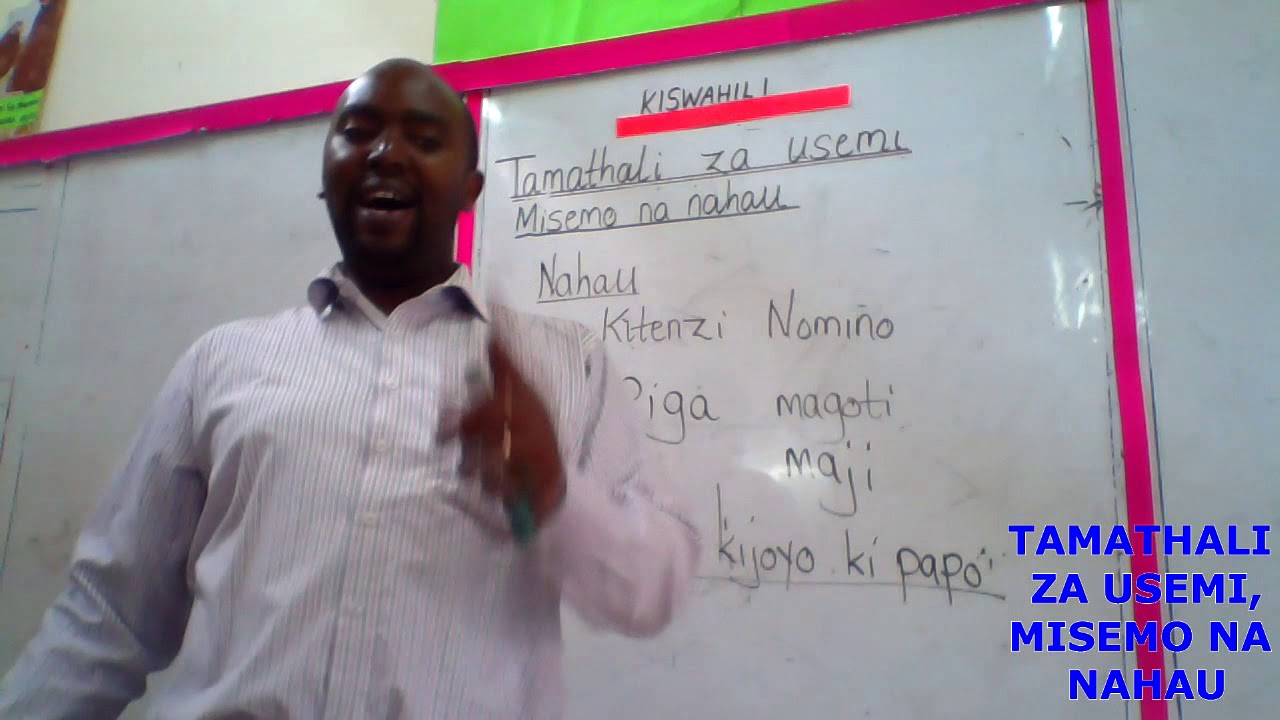 KISWAHILI
Tamathali za usemi
Misemo na nahau
Nahau
Kitenzi Nomino
Piga magoti
maji
kijoyo ki papo
TAMATHALI
ZA USEMI,
MISEMO NA
NAHAU